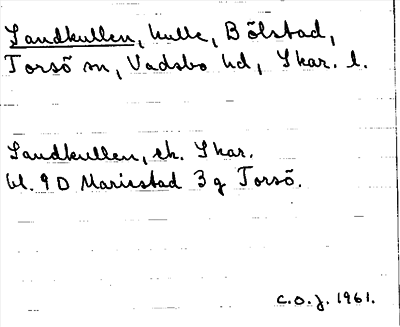 Sandkullen, kulle, Bölstad,
Torsö sn, Vadsbo hd, Skar. l.
Sandkullen, ek. Skar.
bl. 9D Mariestad 3g Torsö.
C.O.J. 1961.